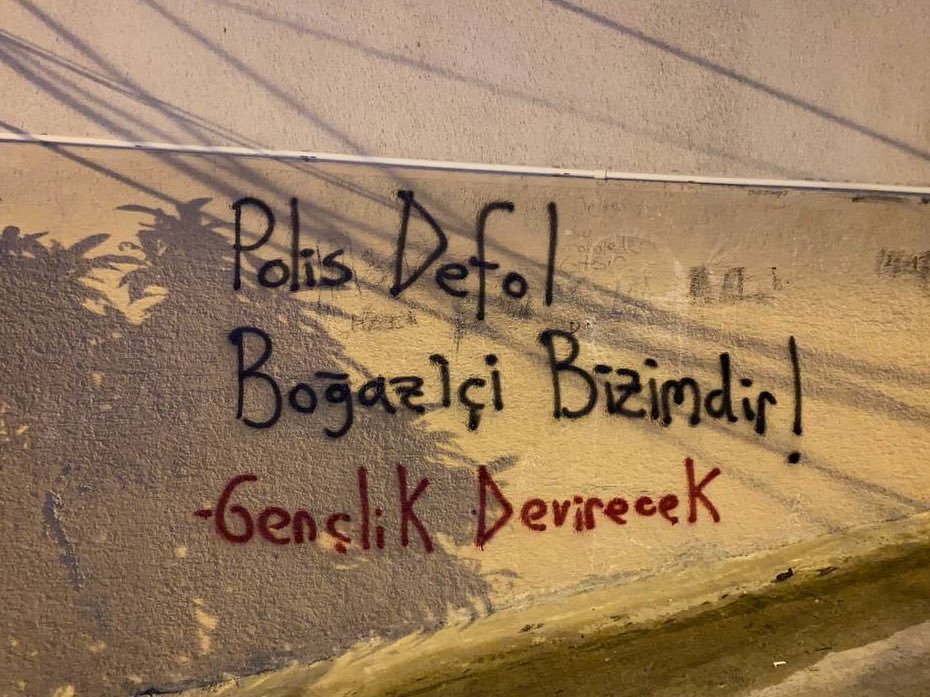 Polis Defol
Boğaziçi Bizimdir!
-Gençlik Devirecek